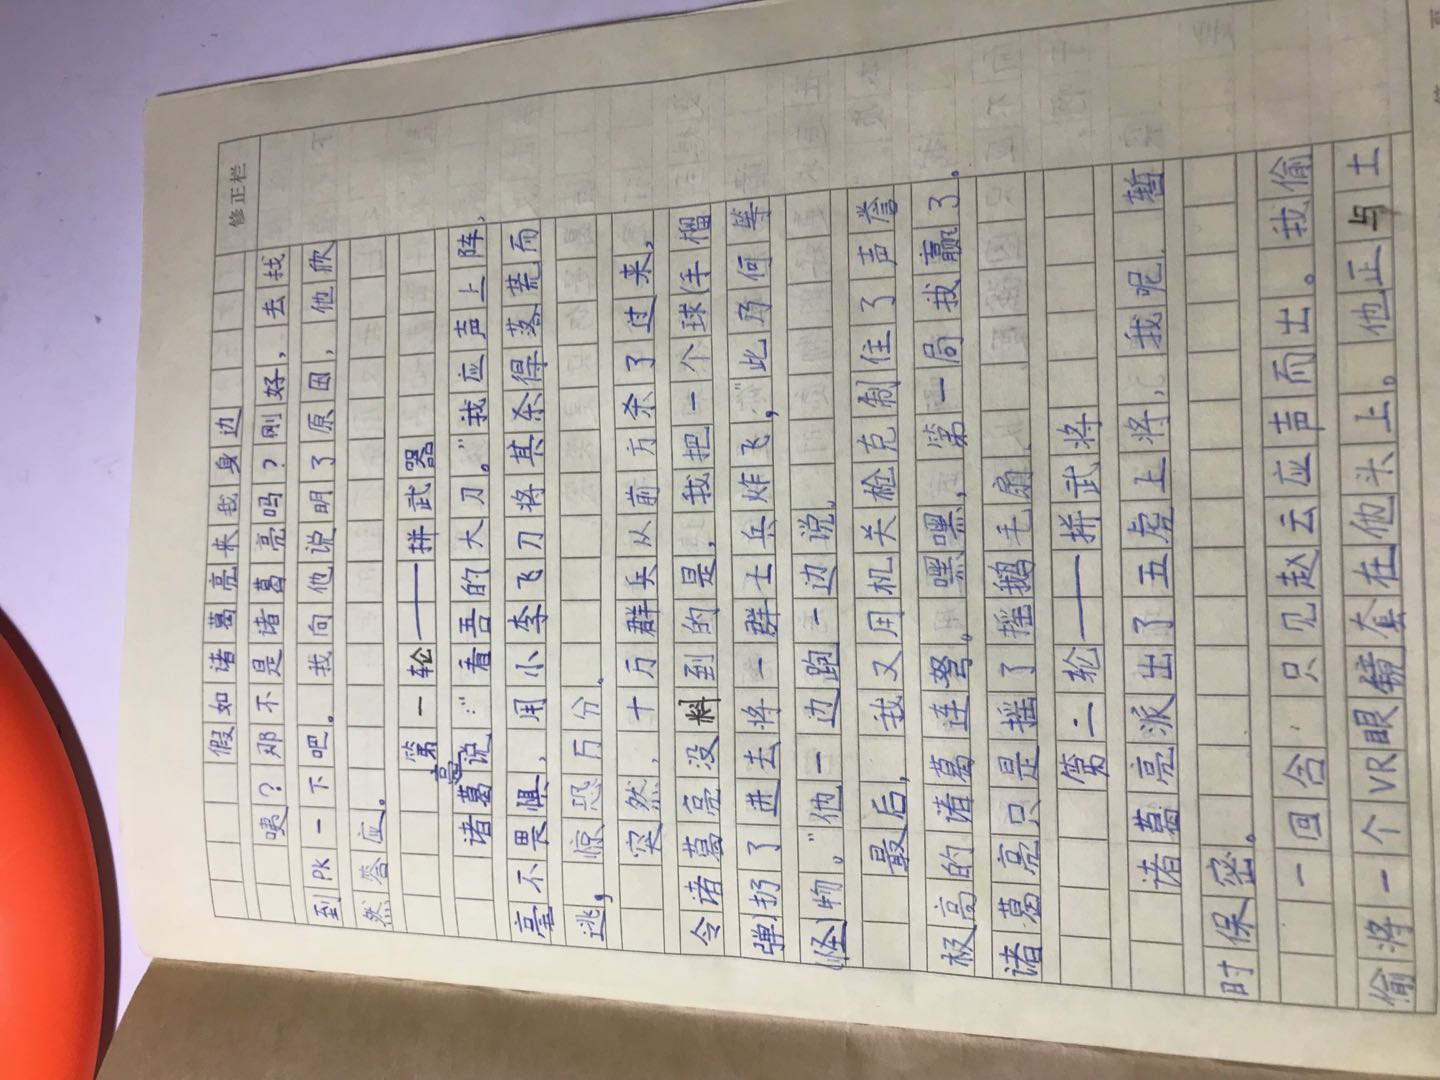 修正栏
假如诸葛亮来我身边
咦？那不是诸葛亮吗？刚好，去找
到PK一下吧。我向他说明了原因，他欣
然答应。
第一轮——拼武器
诸葛亮说："看吾的大刀。"我应声上阵，
毫不畏惧，用小李飞刀将其杀得落荒而
逃，惊恐万分。
突然，十万群兵从前方杀了过来，
令诸葛亮没料到的是，我把一个球(手榴
弹)扔了进去将一群士兵炸飞，"此乃何等
怪物。"他一边跑一边说。
最后，我又用机关枪克制住了声誉
极高的诸葛连弩。嘿嘿，第一局我赢了。
诸葛亮只是摇了摇鹅毛扇。
第二轮——拼武将
诸葛亮派出了五虎上将，我呢，暂
时保密。
一回合，只见赵云应声而出。我偷
偷将一个VR眼镜套在他头上。他正与士